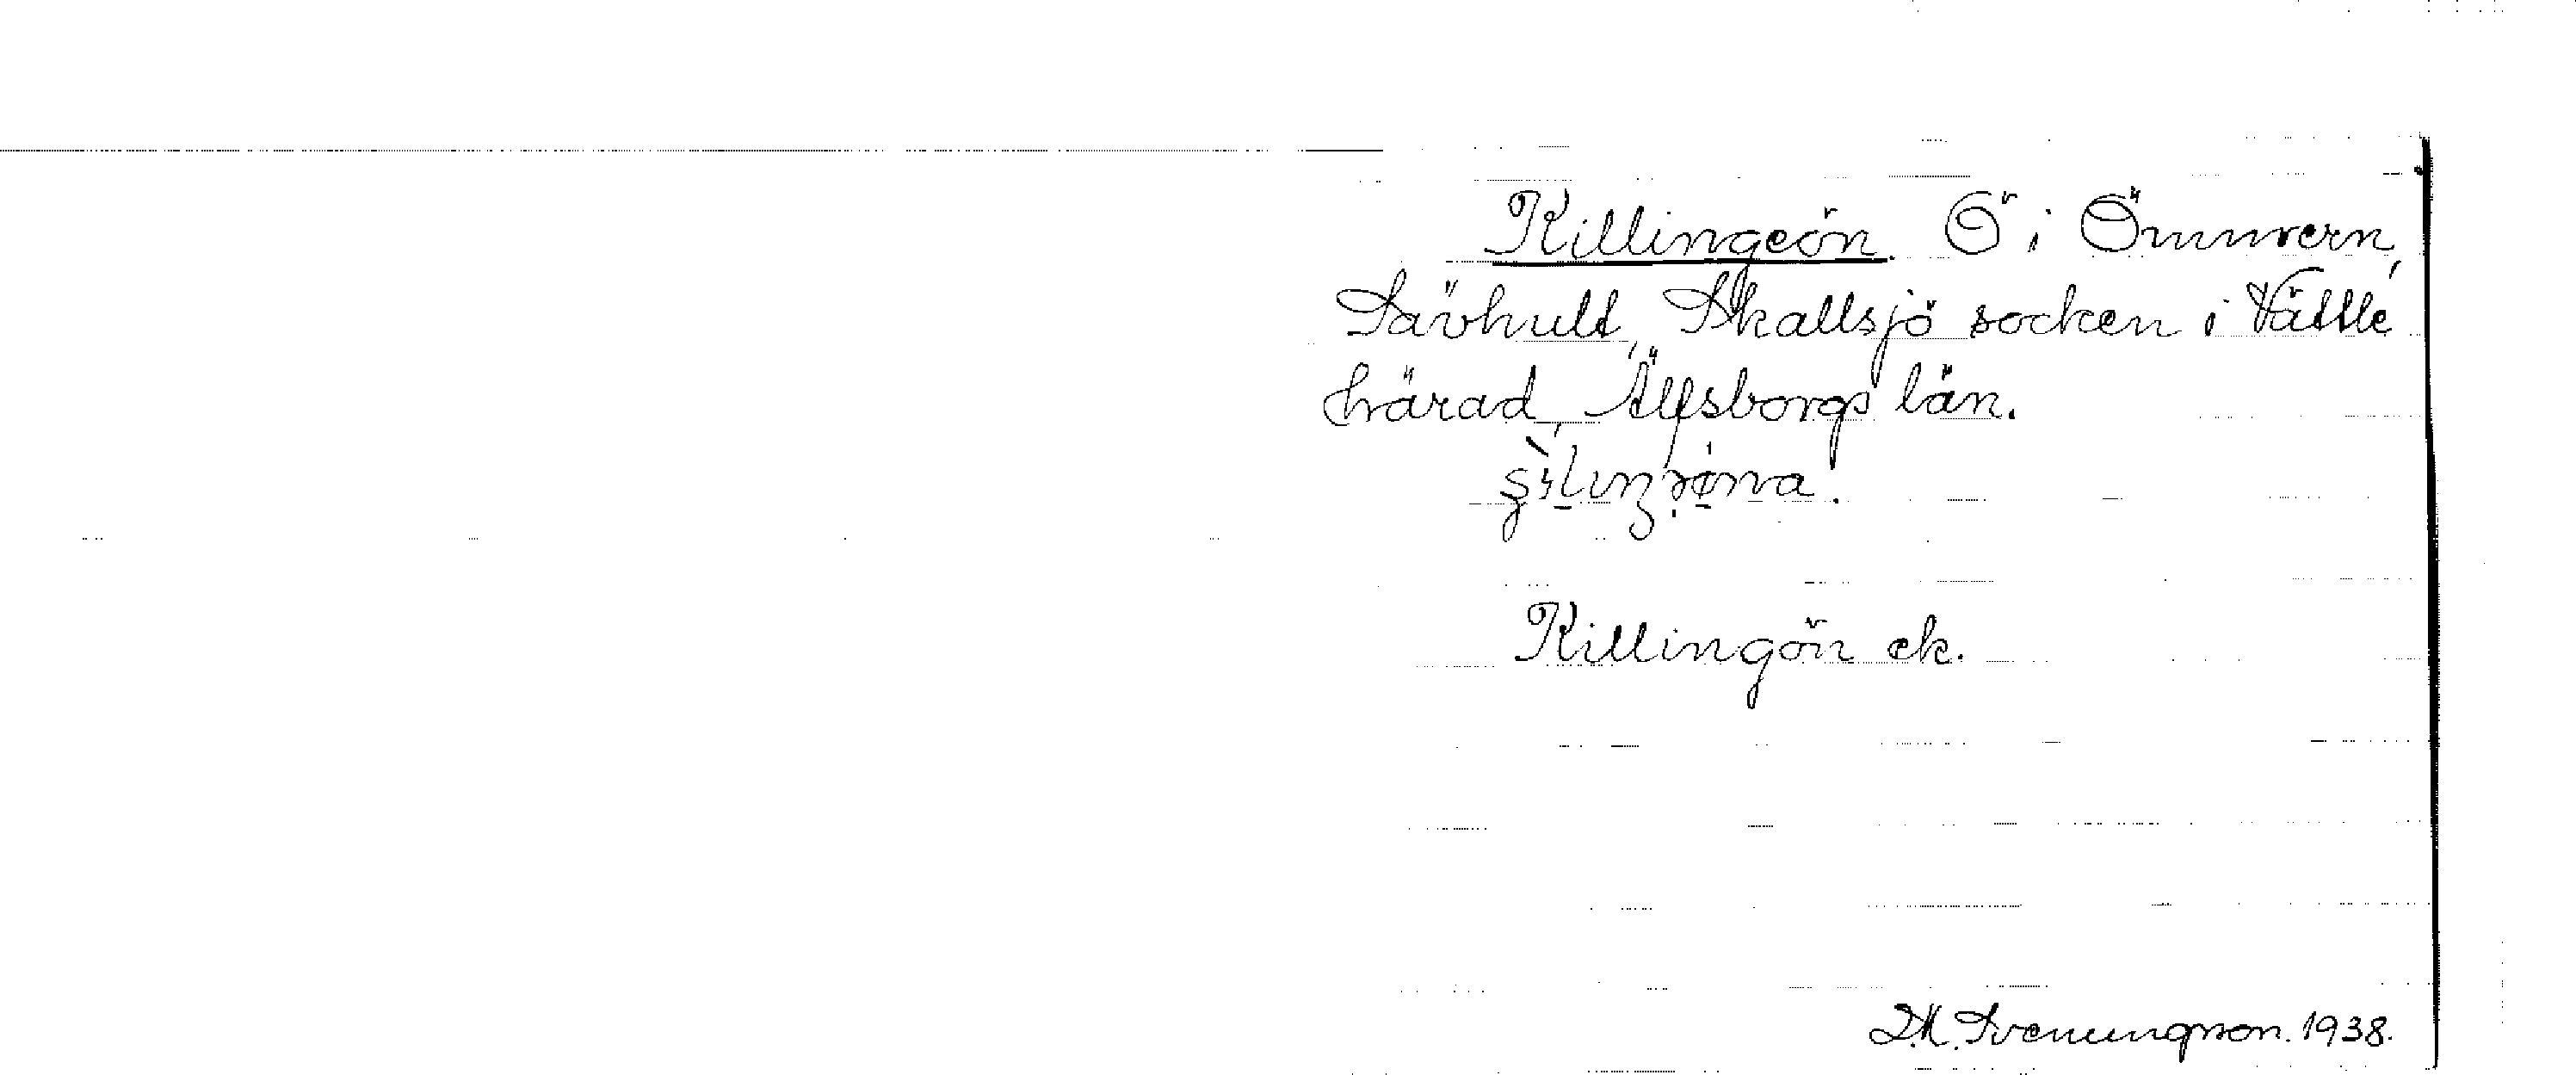 Killingeön. Ö i Ömmern,
Sävhult, Skallsjö socken i Vättle
härad, Älfsborgs län.
Killingön ek.
D.M. Svenungsson. 1938.